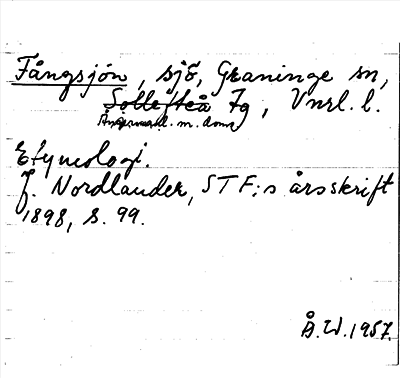 Fångsjön, sjö, Graninge sn,
Sollefteå tg, Vnrl. l.
Ångermanl. m. doms
Etymologi.
J. Nordlander, STF:s årsskrift
1898, s. 99.
Å.W. 1957.